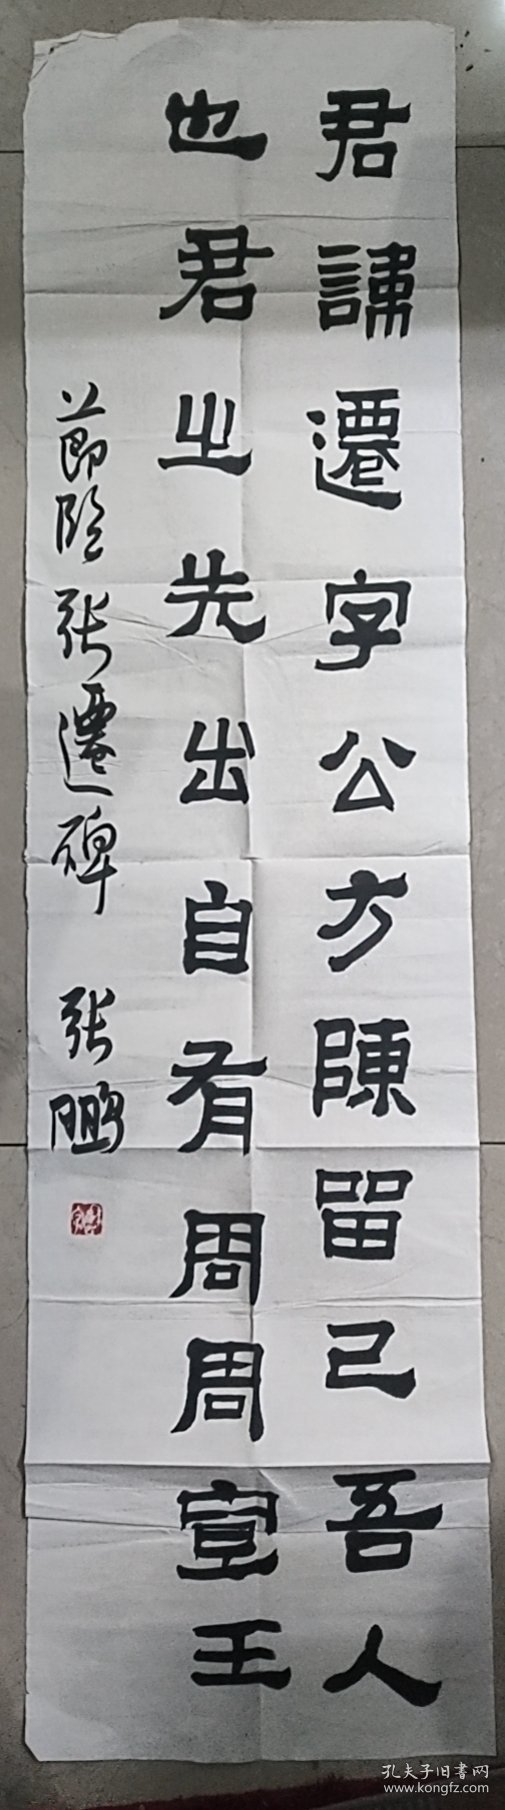 君諱遷字公方陳留己吾人
也君之先出自有周周宣王
節臨張遷碑 张鹏
孔夫子旧书网
www.kongfz.com